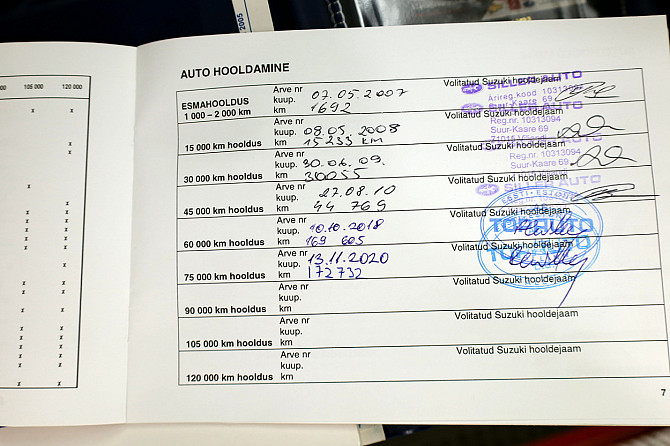 2005
000 105 000 120 000
AUTO HOOLDAMINE
Arve nr Volitatud Suzuki hooldejaam
ESMAHOOLDUS kuup. 07.05.2007 SILLER AUTO
1 000 – 2 000 km km 1692 Ärireg.kood 10313094
Suur-Kaare 69
Arve nr Volitatud Suzuki hooldejaam
kuup. 08.05.2008 Reg.nr. 10313094
15 000 km hooldus km 15 233 km Suur-Kaare 69
Arve nr Volitatud Suzuki hooldejaam
kuup. 30.06.09. Reg.nr. 10313094
30 000 km hooldus km 30055 Suur-Kaare 69
Arve nr Volitatud Suzuki hooldejaam
kuup. 27.08.10 SILLER AUTO
45 000 km hooldus km 44 769
Arve nr Volitatud Suzuki hooldejaam
kuup. 10.10.2018 EESTI • ESTONIA
60 000 km hooldus km 169 605 TOPAUTO
Arve nr Volitatud Suzuki hooldejaam
kuup. 13.11.2020 TOPAUTO
75 000 km hooldus km 172732
Arve nr Volitatud Suzuki hooldejaam
kuup.
90 000 km hooldus km
Arve nr Volitatud Suzuki hooldejaam
kuup.
105 000 km hooldus km
Arve nr Volitatud Suzuki hooldejaam
kuup.
120 000 km hooldus km
7